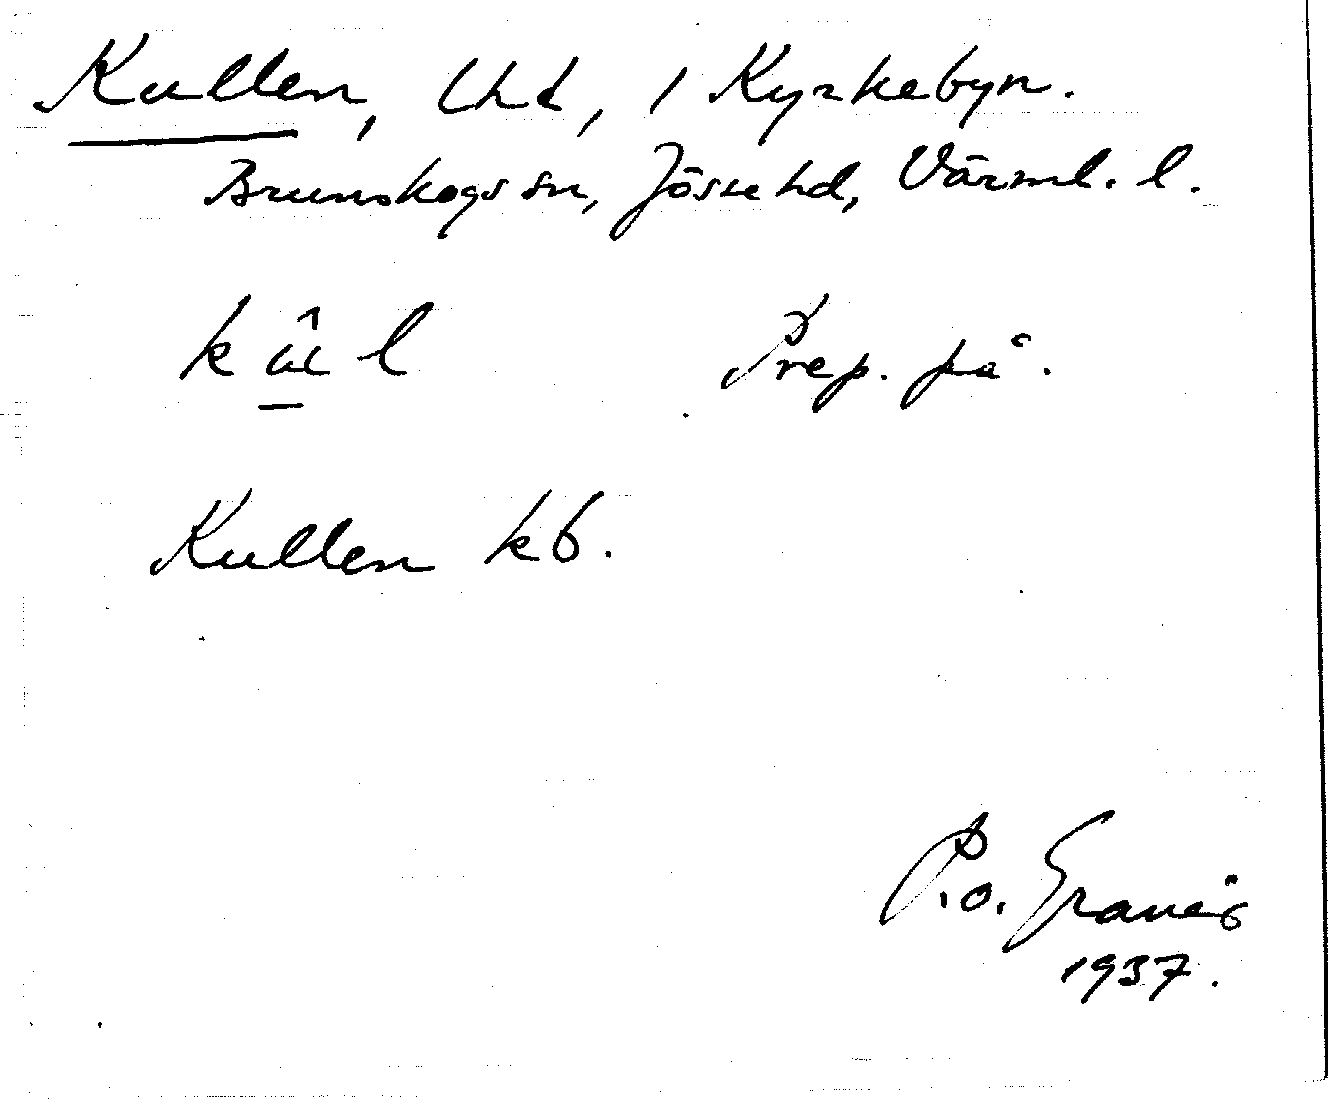 Kullen, lht, i Kyrkebyn.
Brunskogs sn, Jösse hd, Värml. l.
Prep. på.
Kullen kb.
P.o. Graner
1937.